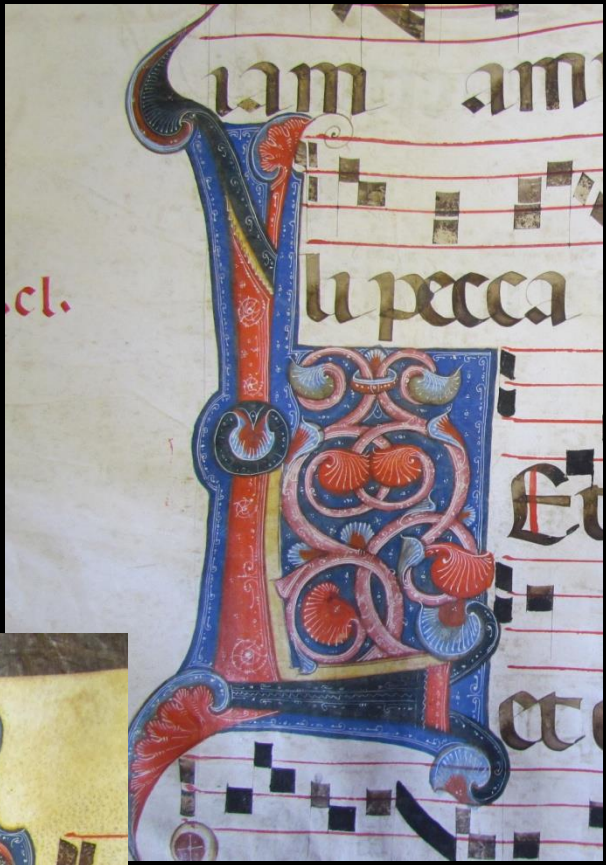 iam am
.cl. li pecca
L
Et
et